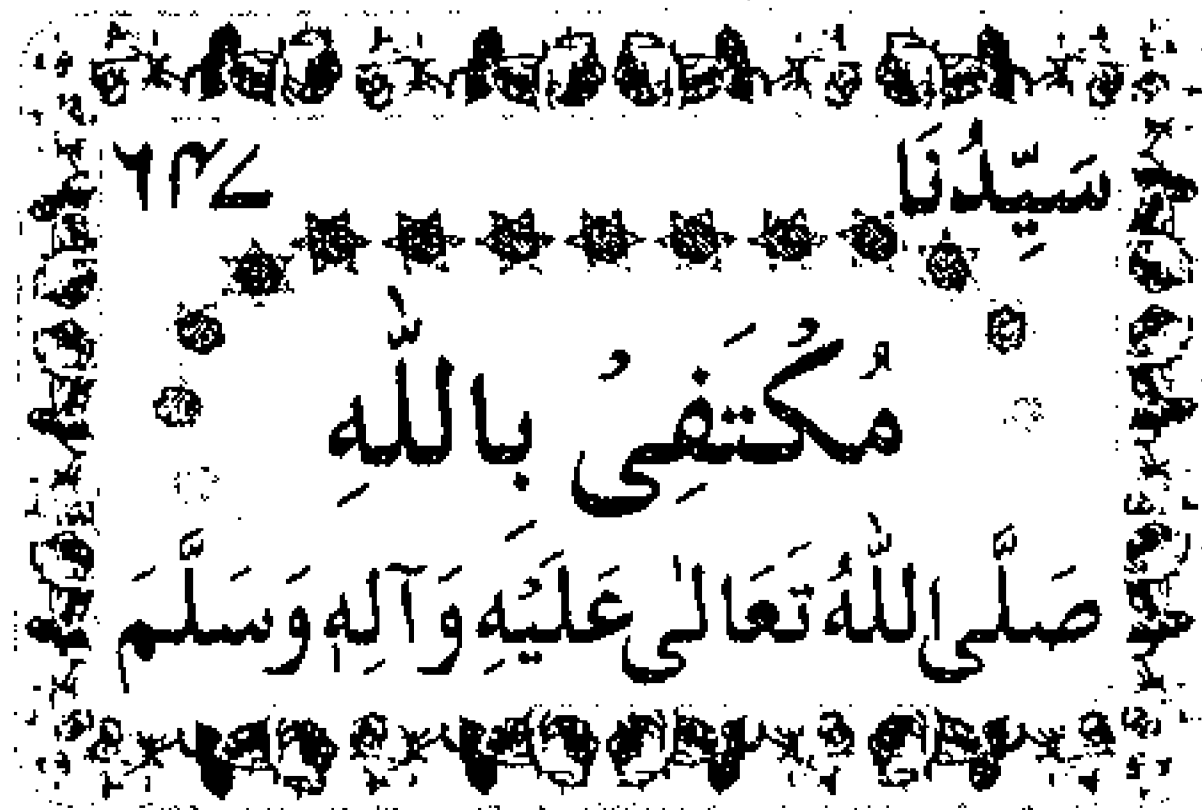 سَيِّدُنَا ۶۳۷
مُكُتَفِىُ بِاللّٰهِ
صَلَّى اللّٰهُ تَعَالٰى عَلَيُهِ وَآلِهٖ وَسَلَّمَ